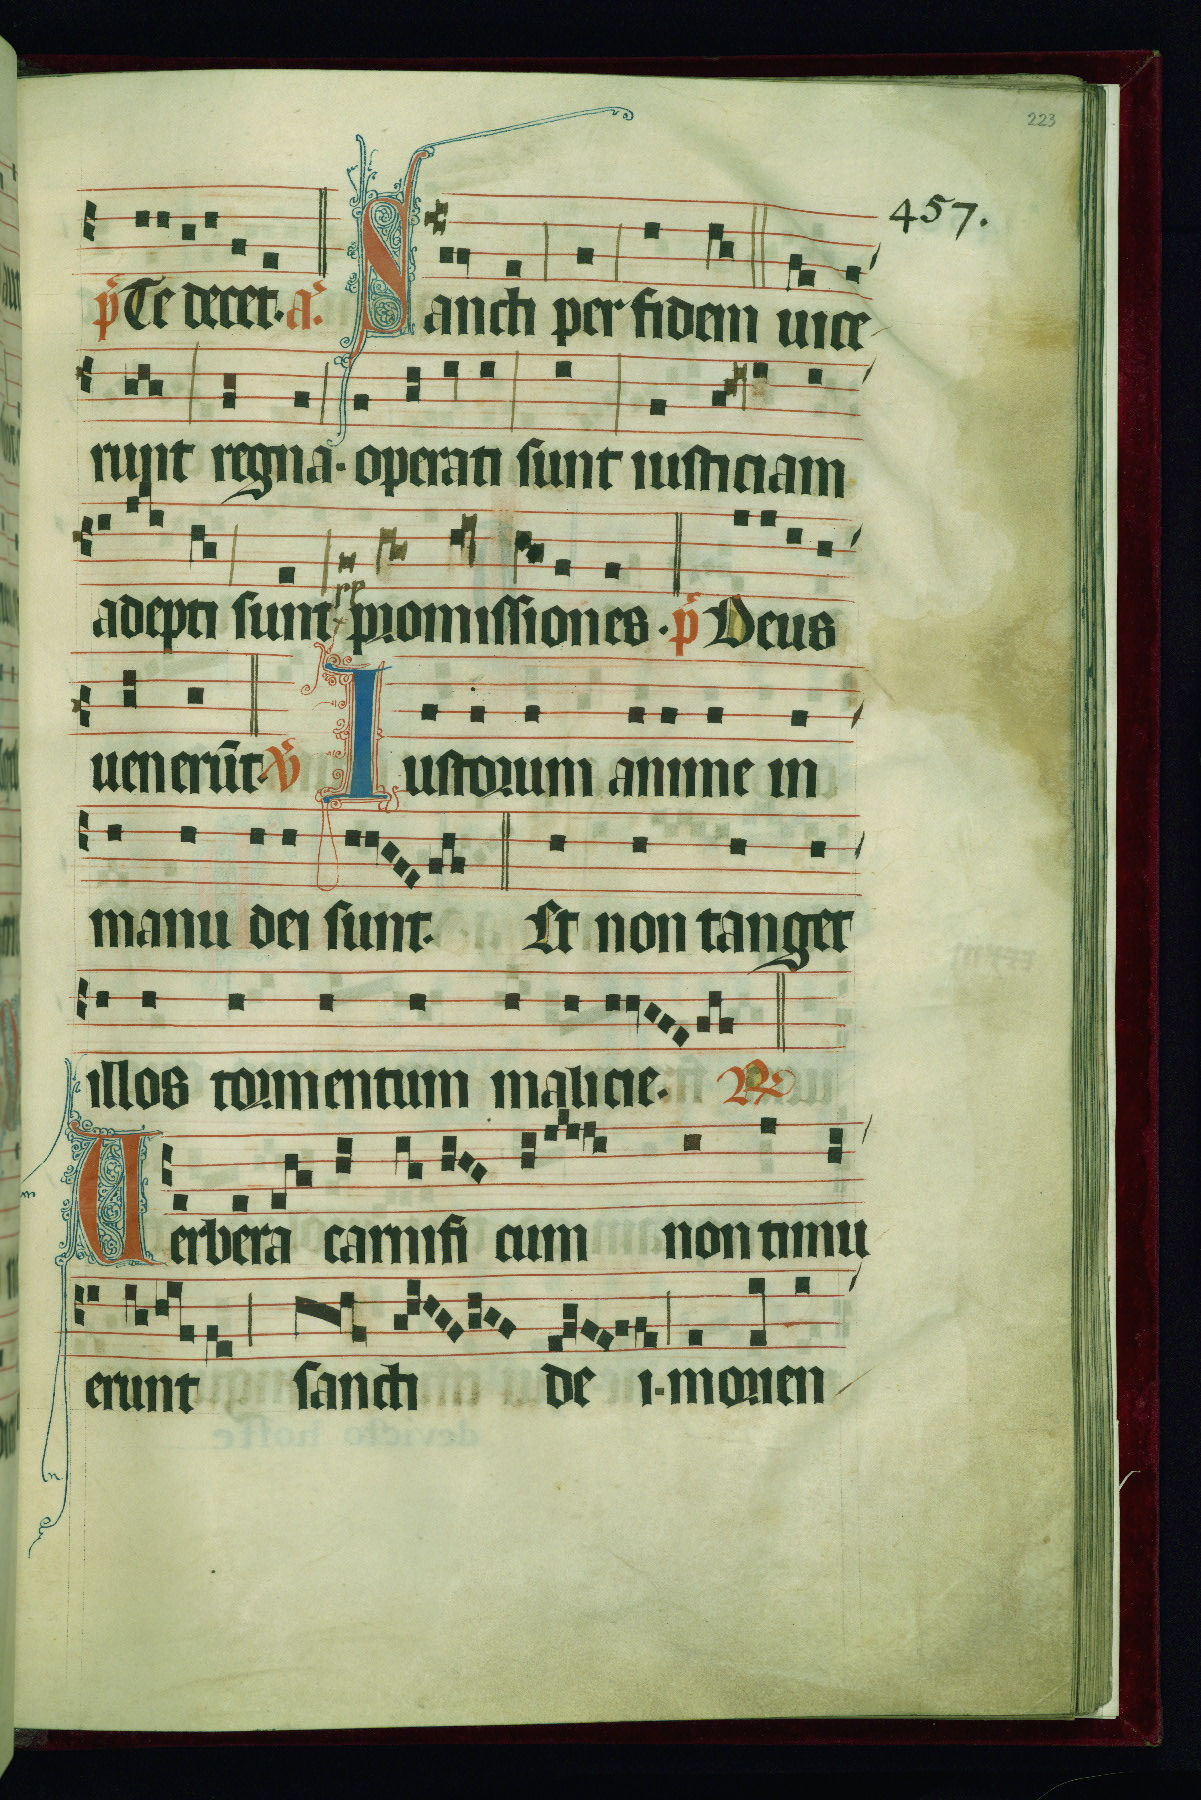 223
457.
p̃ Te decet. ã. Sancti per fidem uice
runt regna. operati sunt iusticiam
adepti sunt rep promissiones. p̃ Deus
uenerūt. V̄ Iustorum anime in
manu dei sunt. Et non tanget
illos tormentum malicie. ℟
Uerbera carnifi cum non timu
erunt sancti de i-morien